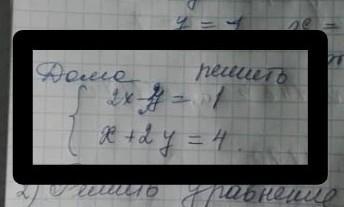 y = -1 x =
Дома решить
2x - y = 1
x + 2y = 4
2) Решить уравнение